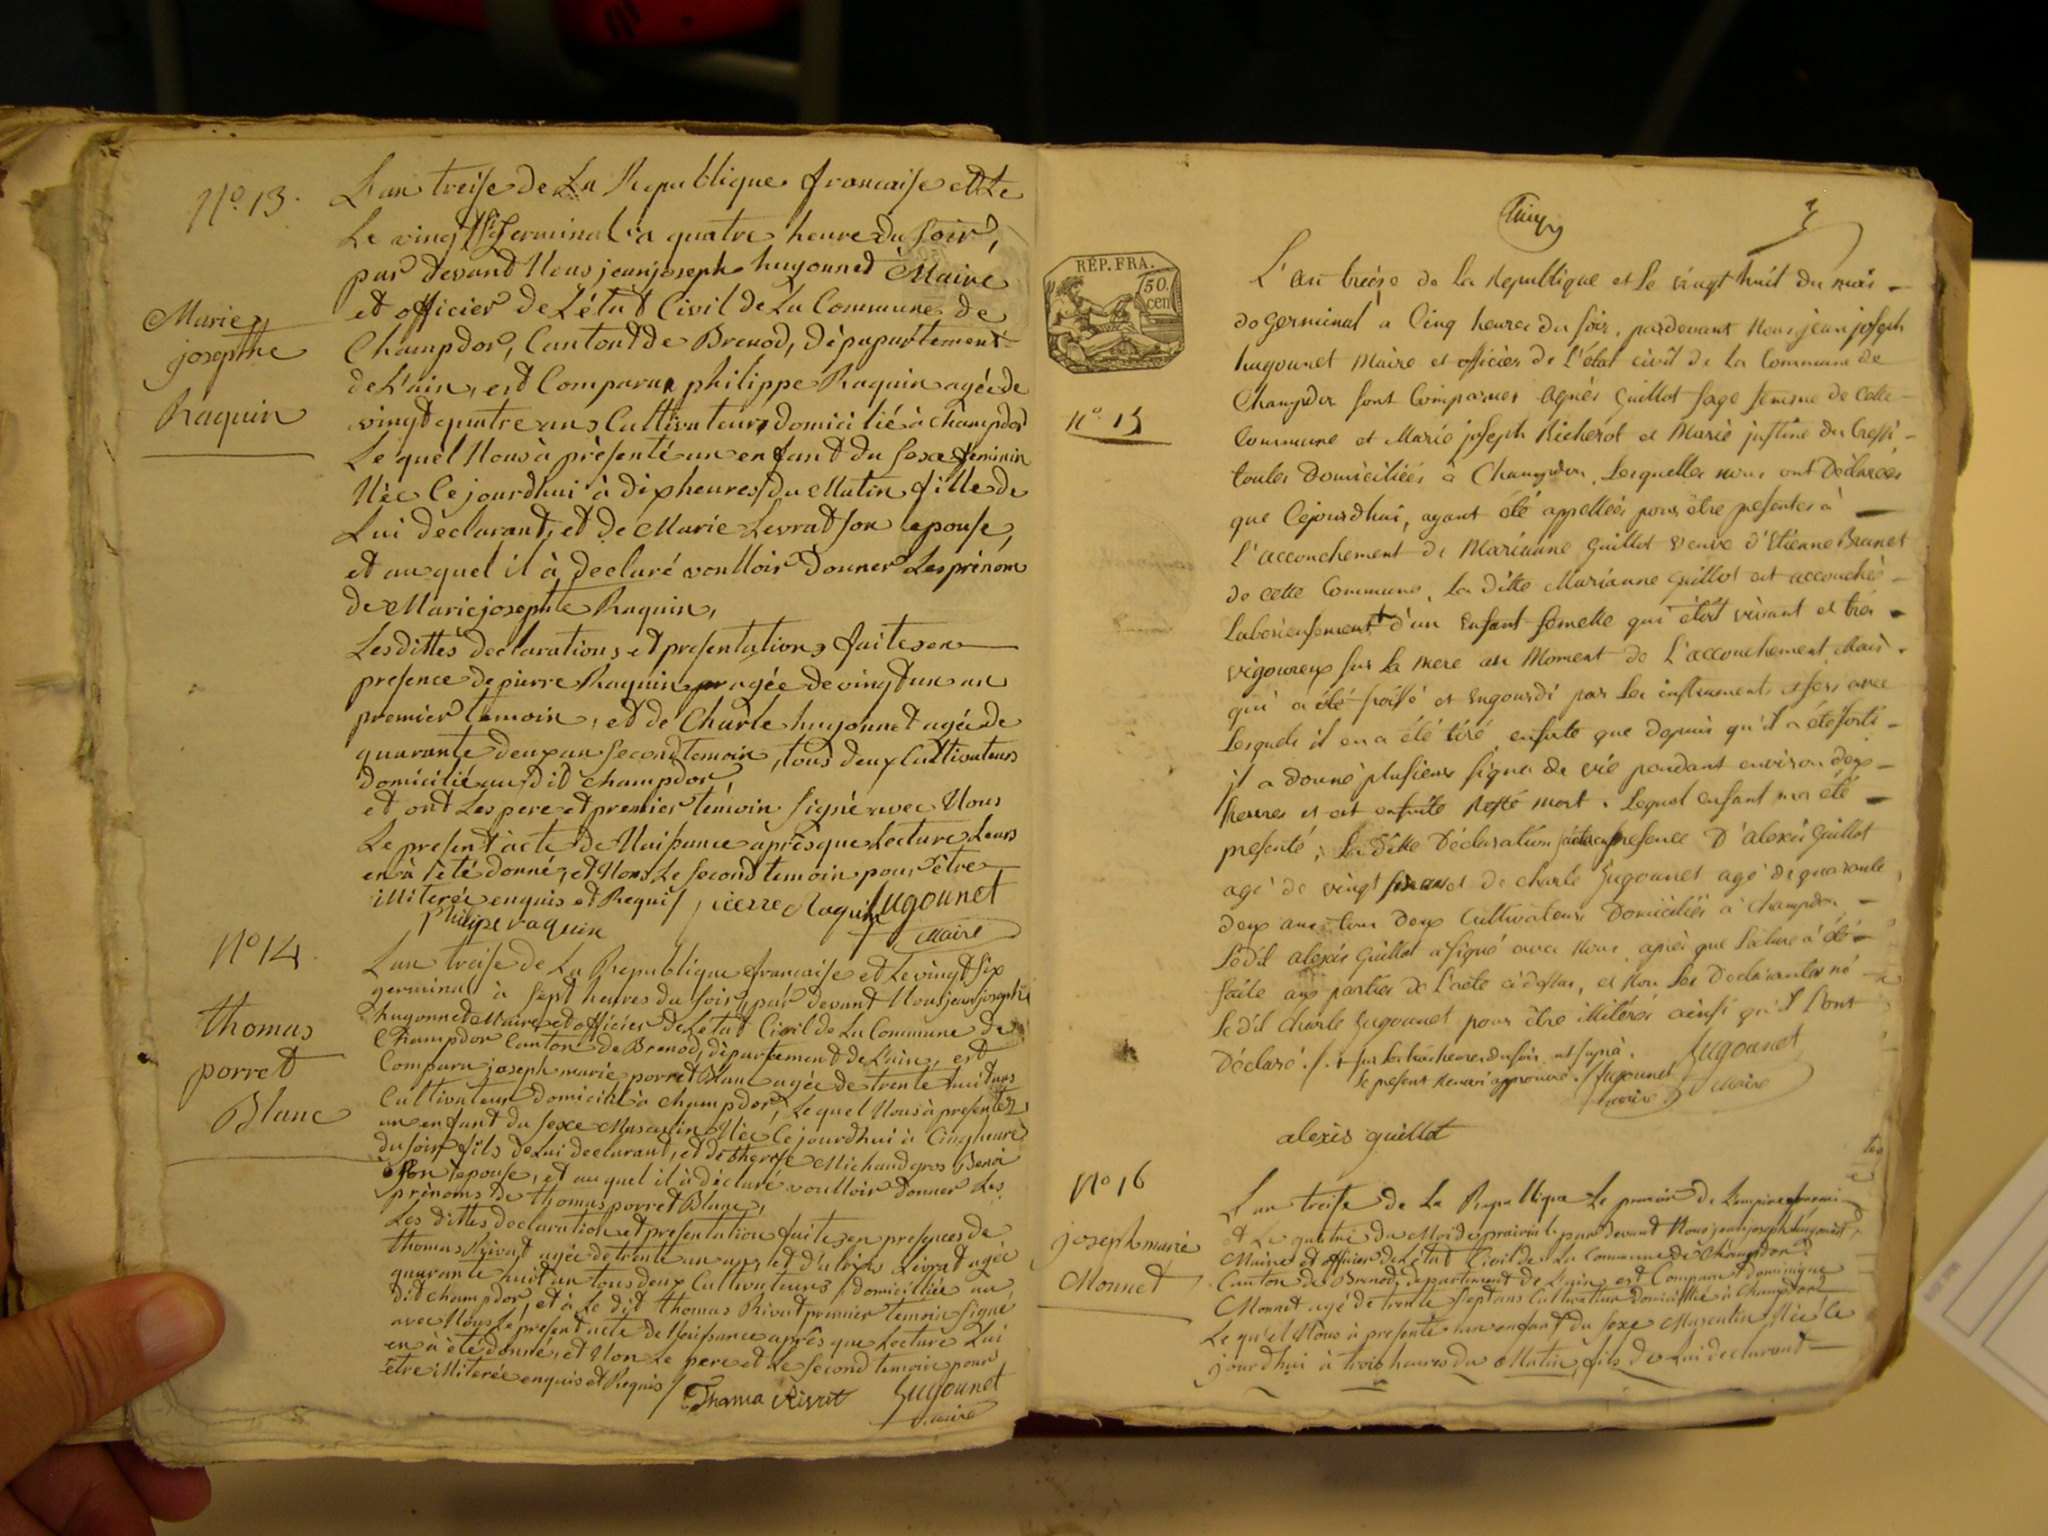 N.o 13.
Marie
josephte
Raquin
L'an treise de La Republique francaise et Le
Le vingt Germinal a quatre heure du soir,
par devant Nous jean joseph hugonnet Maire
et officier de L'état Civil de La Commune de
Champdor, Canton de Brenod, département
de L'ain, est Comparu philippe Raquin agée de
vingt quatre ans Cultivateur, domicilié à Champdor
Le quel Nous à présenté un enfant du sexe feminin
Née Ce jourdhui à dix heures du Matin fille de
Lui déclarant, et de Marie Levrat son epouse,
et au quel il à declaré voulloir donner Les prénom
de Marie josephte Raquin,
Les dittes declarations et presentations faites en
presence de pierre Raquin agée de vingt un an
premier temoin, et de Charle hugonnet agée de
quarante deux an second temoin, tous deux Cultivateurs
domicilié au dit champdor
et ont Les pere et premier témoin signé avec Nous
Le present acte de Naissance après que Lecture Leurs
en à été donné, et Non Le second temoin pour être
illiteré enquis et Requis / pierre Raquin hugonnet
philipe raquin Maire
N.o 14.
thomas
porret
Blanc
L'an treise de La Republique francaise et Le vingt six
germinal à sept heures du soir, par devant Nous jean joseph
hugonnet Maire et officier de L'etat Civil de La Commune de
Champdor Canton de Brenod, département de L'ain, est
Comparu joseph marie porret Blanc agée de trente huit ans
Cultivateur domicilié à champdor, Le quel Nous à presenté
un enfant du sexe Masculin Née Ce jourdhui à Cinq heure
du soir fils de Lui declarant, et de therese Michaud gros Benoi
son epouse, et au quel il à déclaré voulloir donner Les
prénoms de thomas porret Blanc,
Les dittes declaration et presentation faites en presences de
thomas Rivat agée de trente un ans et d'alexis Levrat agée
quarante huit an tous deux Cultivateurs domiciliée au
dit champdor, et à Le dit thomas Rivat premier temoin signé
avec Nous Le present acte de Naissance après que Lecture Lui
en à été donné, et Non Le pere et Le second temoin pour
être illiterée enquis et Requis / Thoma Rivat hugonnet
maire
3
RÉP. FRA.
50.
cen
n.o 15
L'an treize de la Republique et Le vingt huit du moi
de germinal à Cinq heures du soir, pardevant Nous jean joseph
hugonnet Maire et officier de L'état civil de la Commune de
Champdor sont Comparues agnès guillot sage femme de cette
Commune et Marie joseph Richerot et Marie justine
toutes domiciliées à Champdor, Lesquelles nous ont déclarées
que Cejourdhui, ayant été appellées pour être presentes à
L'accouchement de Marianne guillot veuve d'Etienne Brunet
de cette Commune, la ditte Marianne guillot est accouchée
Laborieusement + d'un Enfant femelle qui étoit vivant et tres
vigoureux sur la mere au Moment de L'accouchement Mais
qui a été froissé et Engourdi par les instruments et fers avec
Lesquels il en a été tiré, ensorte que depuis qu'il a été sorti
il a donné plusieurs signes de vie pendant environ deux
heures et est ensuite resté mort. Lequel enfant m'a été
presenté, La ditte Déclaration faite en presence D'alexis guillot
agé de vingt ans et de charle hugonnet agé de quarante
deux ans tous deux Cultivateurs Domiciliés à Champdor
Ledit alexis guillot a signé avec nous après que Lecture à été
faite aux parties de L'acte ci dessus, et Non Les Declarantes ni
Ledit Charle hugonnet pour être illiterés ainsi qu'il L'ont
Déclaré ./. + sur Les trois heures du soir
Le present renvoi approuvé ./. hugonnet
maire
hugonnet
Maire
alexis guillot
N.o 16
joseph marie
Monnet
L'an treise de La Republique Le premier de L'empire francai
et Le quatre du Mois de prairial pardevant Nous jean joseph hugonnet
Maire et officier de L'état Civil de La Commune de Champdor
Canton de Brenod, departement de L'ain est Comparu dominique
Monnet agé de trente sept ans Cultivateur Domicillié à Champdor
Le quel Nous à presenté un enfant du sexe Masculin Née le
jourdhui à trois heures du Matin, fils de Lui declarant